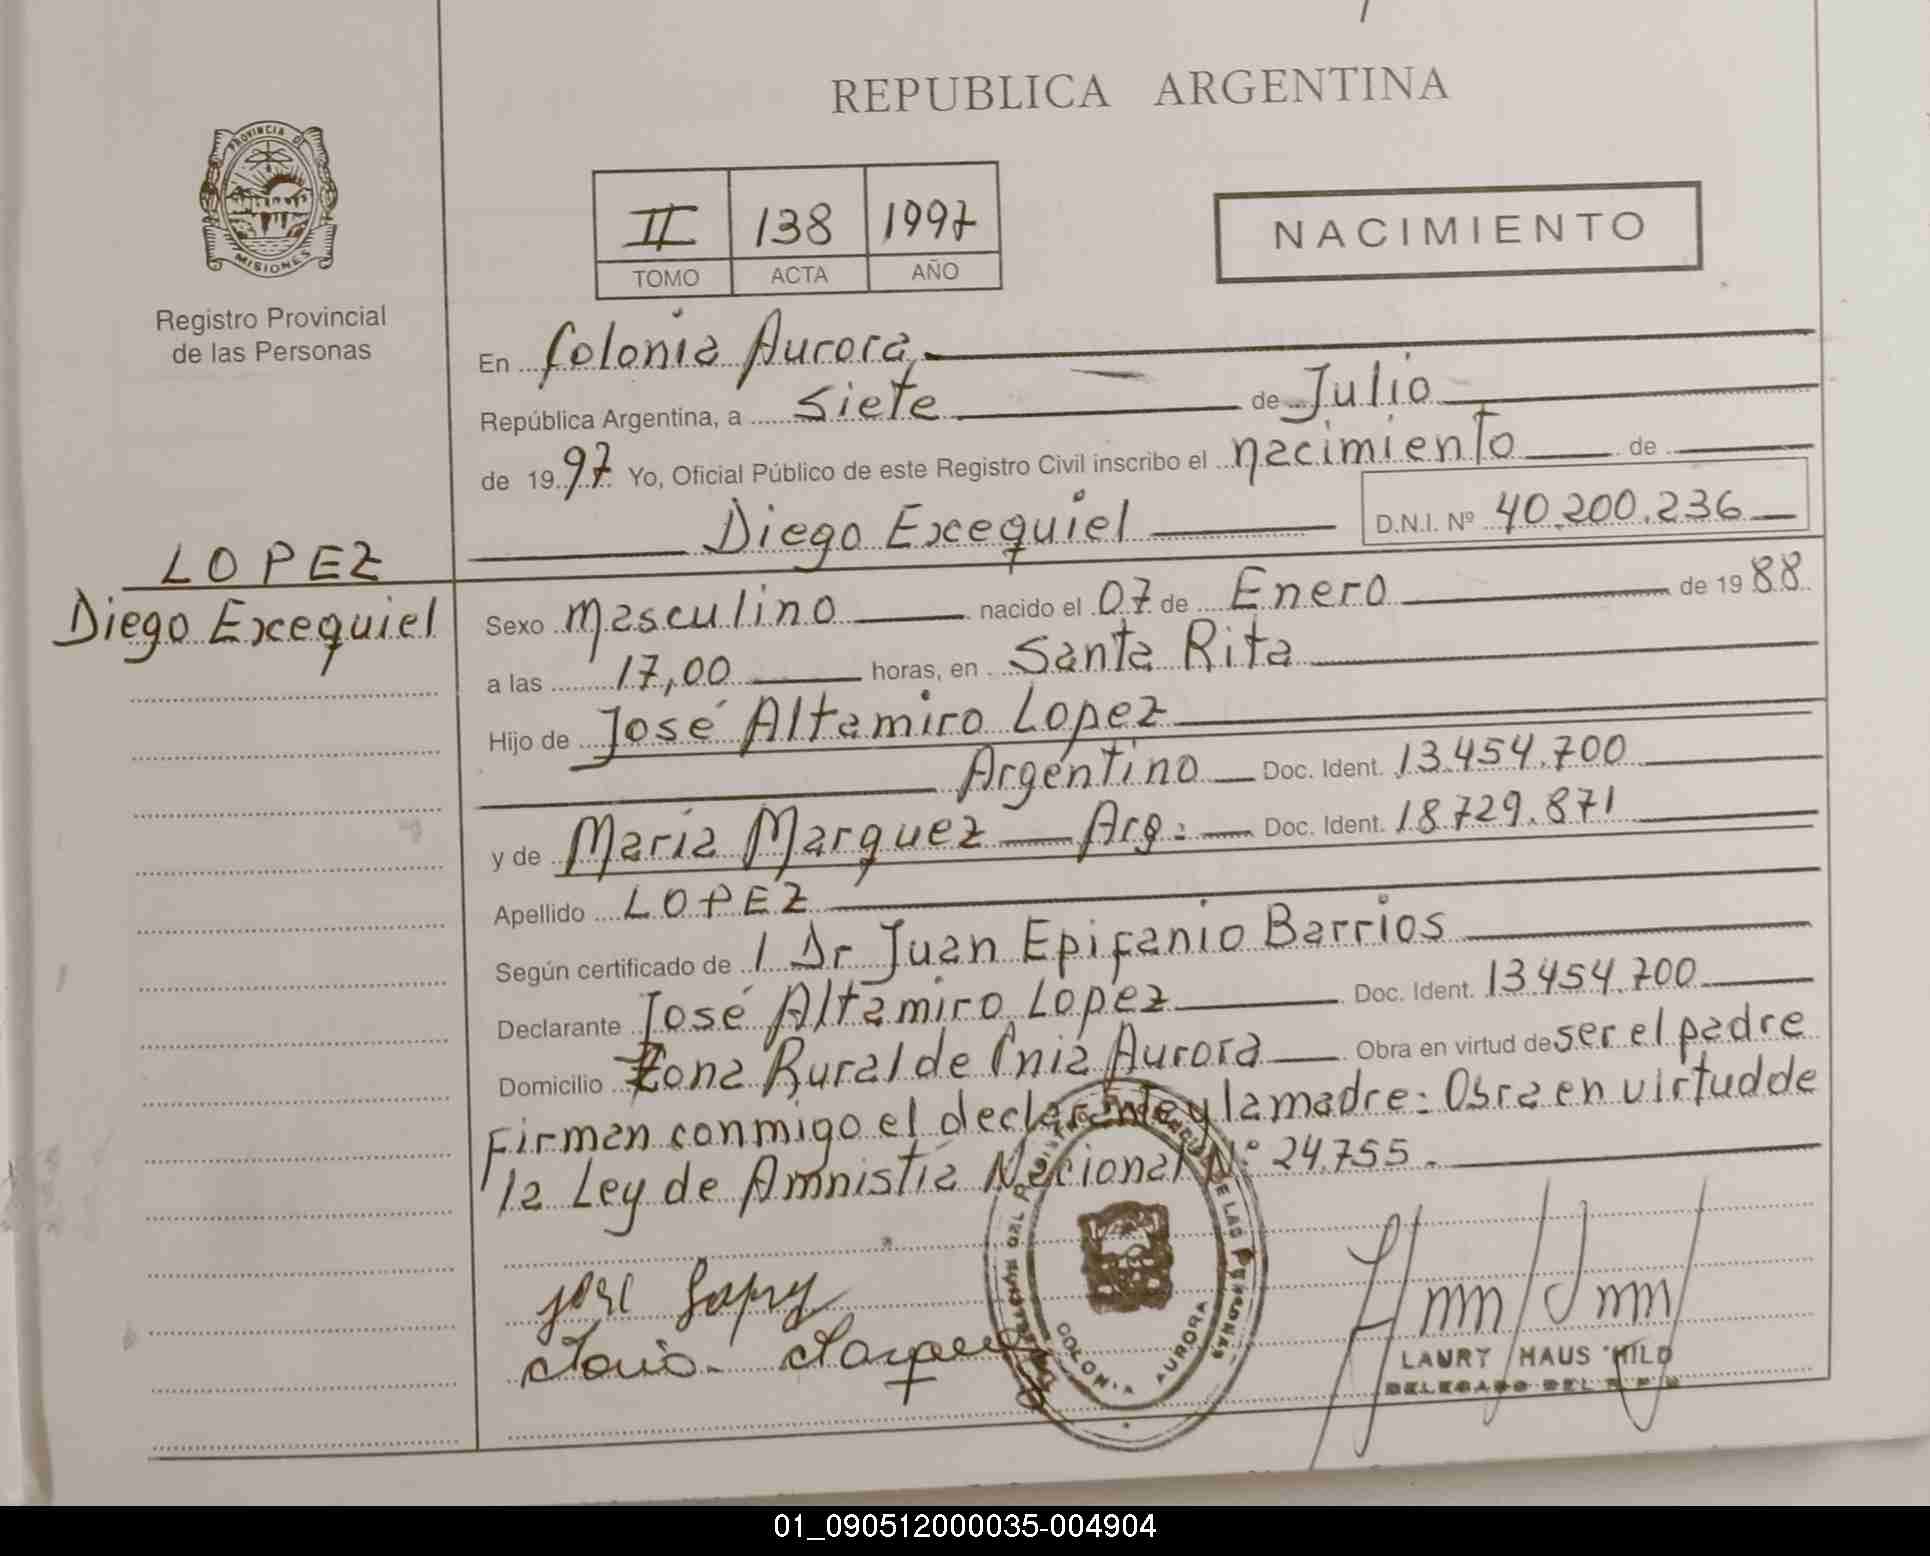 REPUBLICA ARGENTINA
PROVINCIA DE
MISIONES
Registro Provincial
de las Personas
II 138 1997
TOMO ACTA AÑO
NACIMIENTO
En Colonia Aurora
República Argentina, a siete de Julio
de 1997 Yo, Oficial Público de este Registro Civil inscribo el nacimiento de
Diego Exequiel D.N.I. Nº 40.200.236
LOPEZ
Diego Exequiel
Sexo Masculino nacido el 07 de Enero de 1988
a las 17,00 horas, en Santa Rita
Hijo de José Altamiro Lopez
Argentino Doc. Ident. 13.454.700
y de Maria Marquez Arg: Doc. Ident. 18.729.871
Apellido LOPEZ
Según certificado de / Dr Juan Epifanio Barrios
Declarante José Altamiro Lopez Doc. Ident. 13.454.700
Domicilio Zona Rural de Cnia Aurora Obra en virtud de ser el padre
Firman conmigo el declarante y la madre: Obra en virtud de
la Ley de Amnistia Nacional Nº 24.755.
José Lopez
Maria Marquez
COLONIA AURORA
DE LAS PERSONAS
LAURY HAUS HILD
DELEGADO DEL R.P.P.
01_090512000035-004904